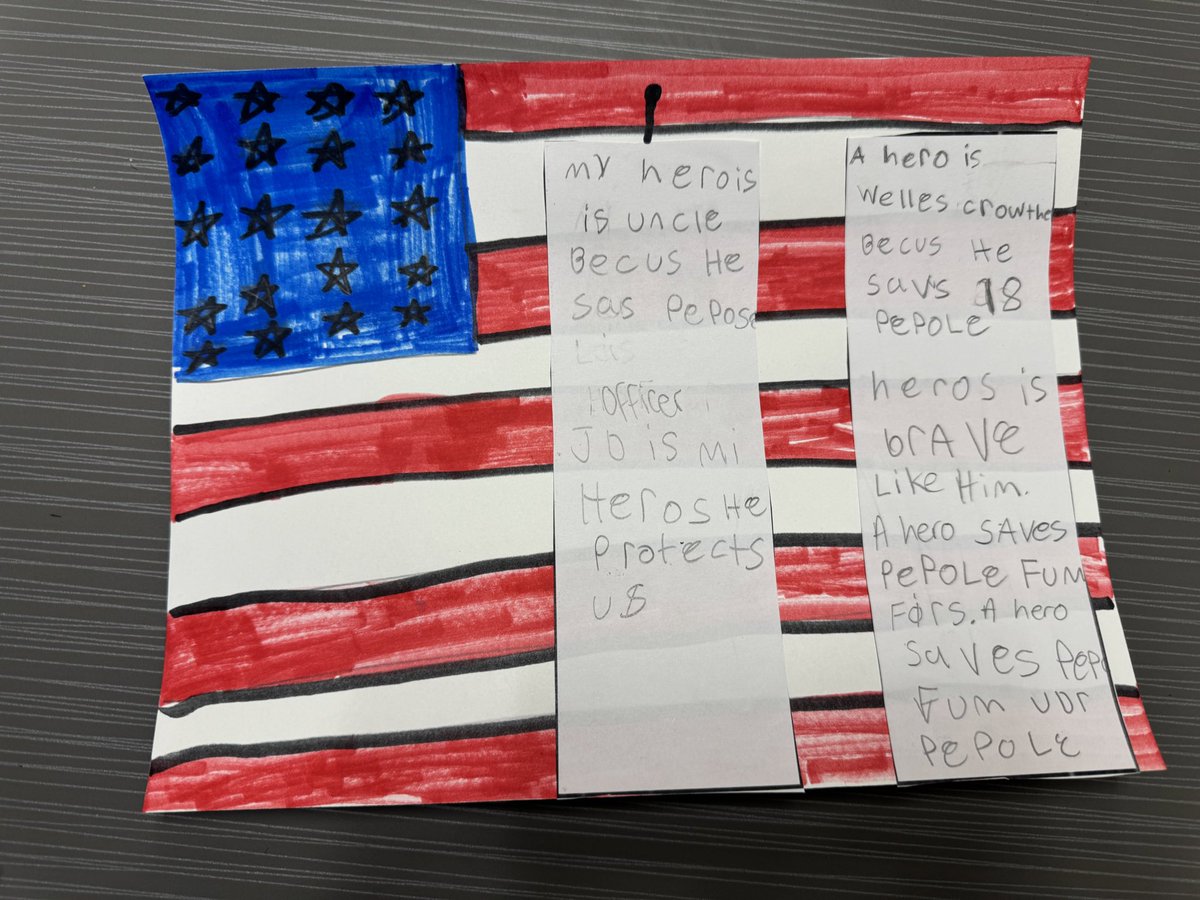 my herois
is uncle
Becus He
sas Pepose
Officer
JO is mi
Heros He
Protects
us
A hero is
Welles crowthe
Becus He
savs 18
PePOLe
heros is
brAVe
Like Him.
A hero SAVes
PePOLe FUM
Firs. A hero
saVes PeP
FUM UOr
PePOLe